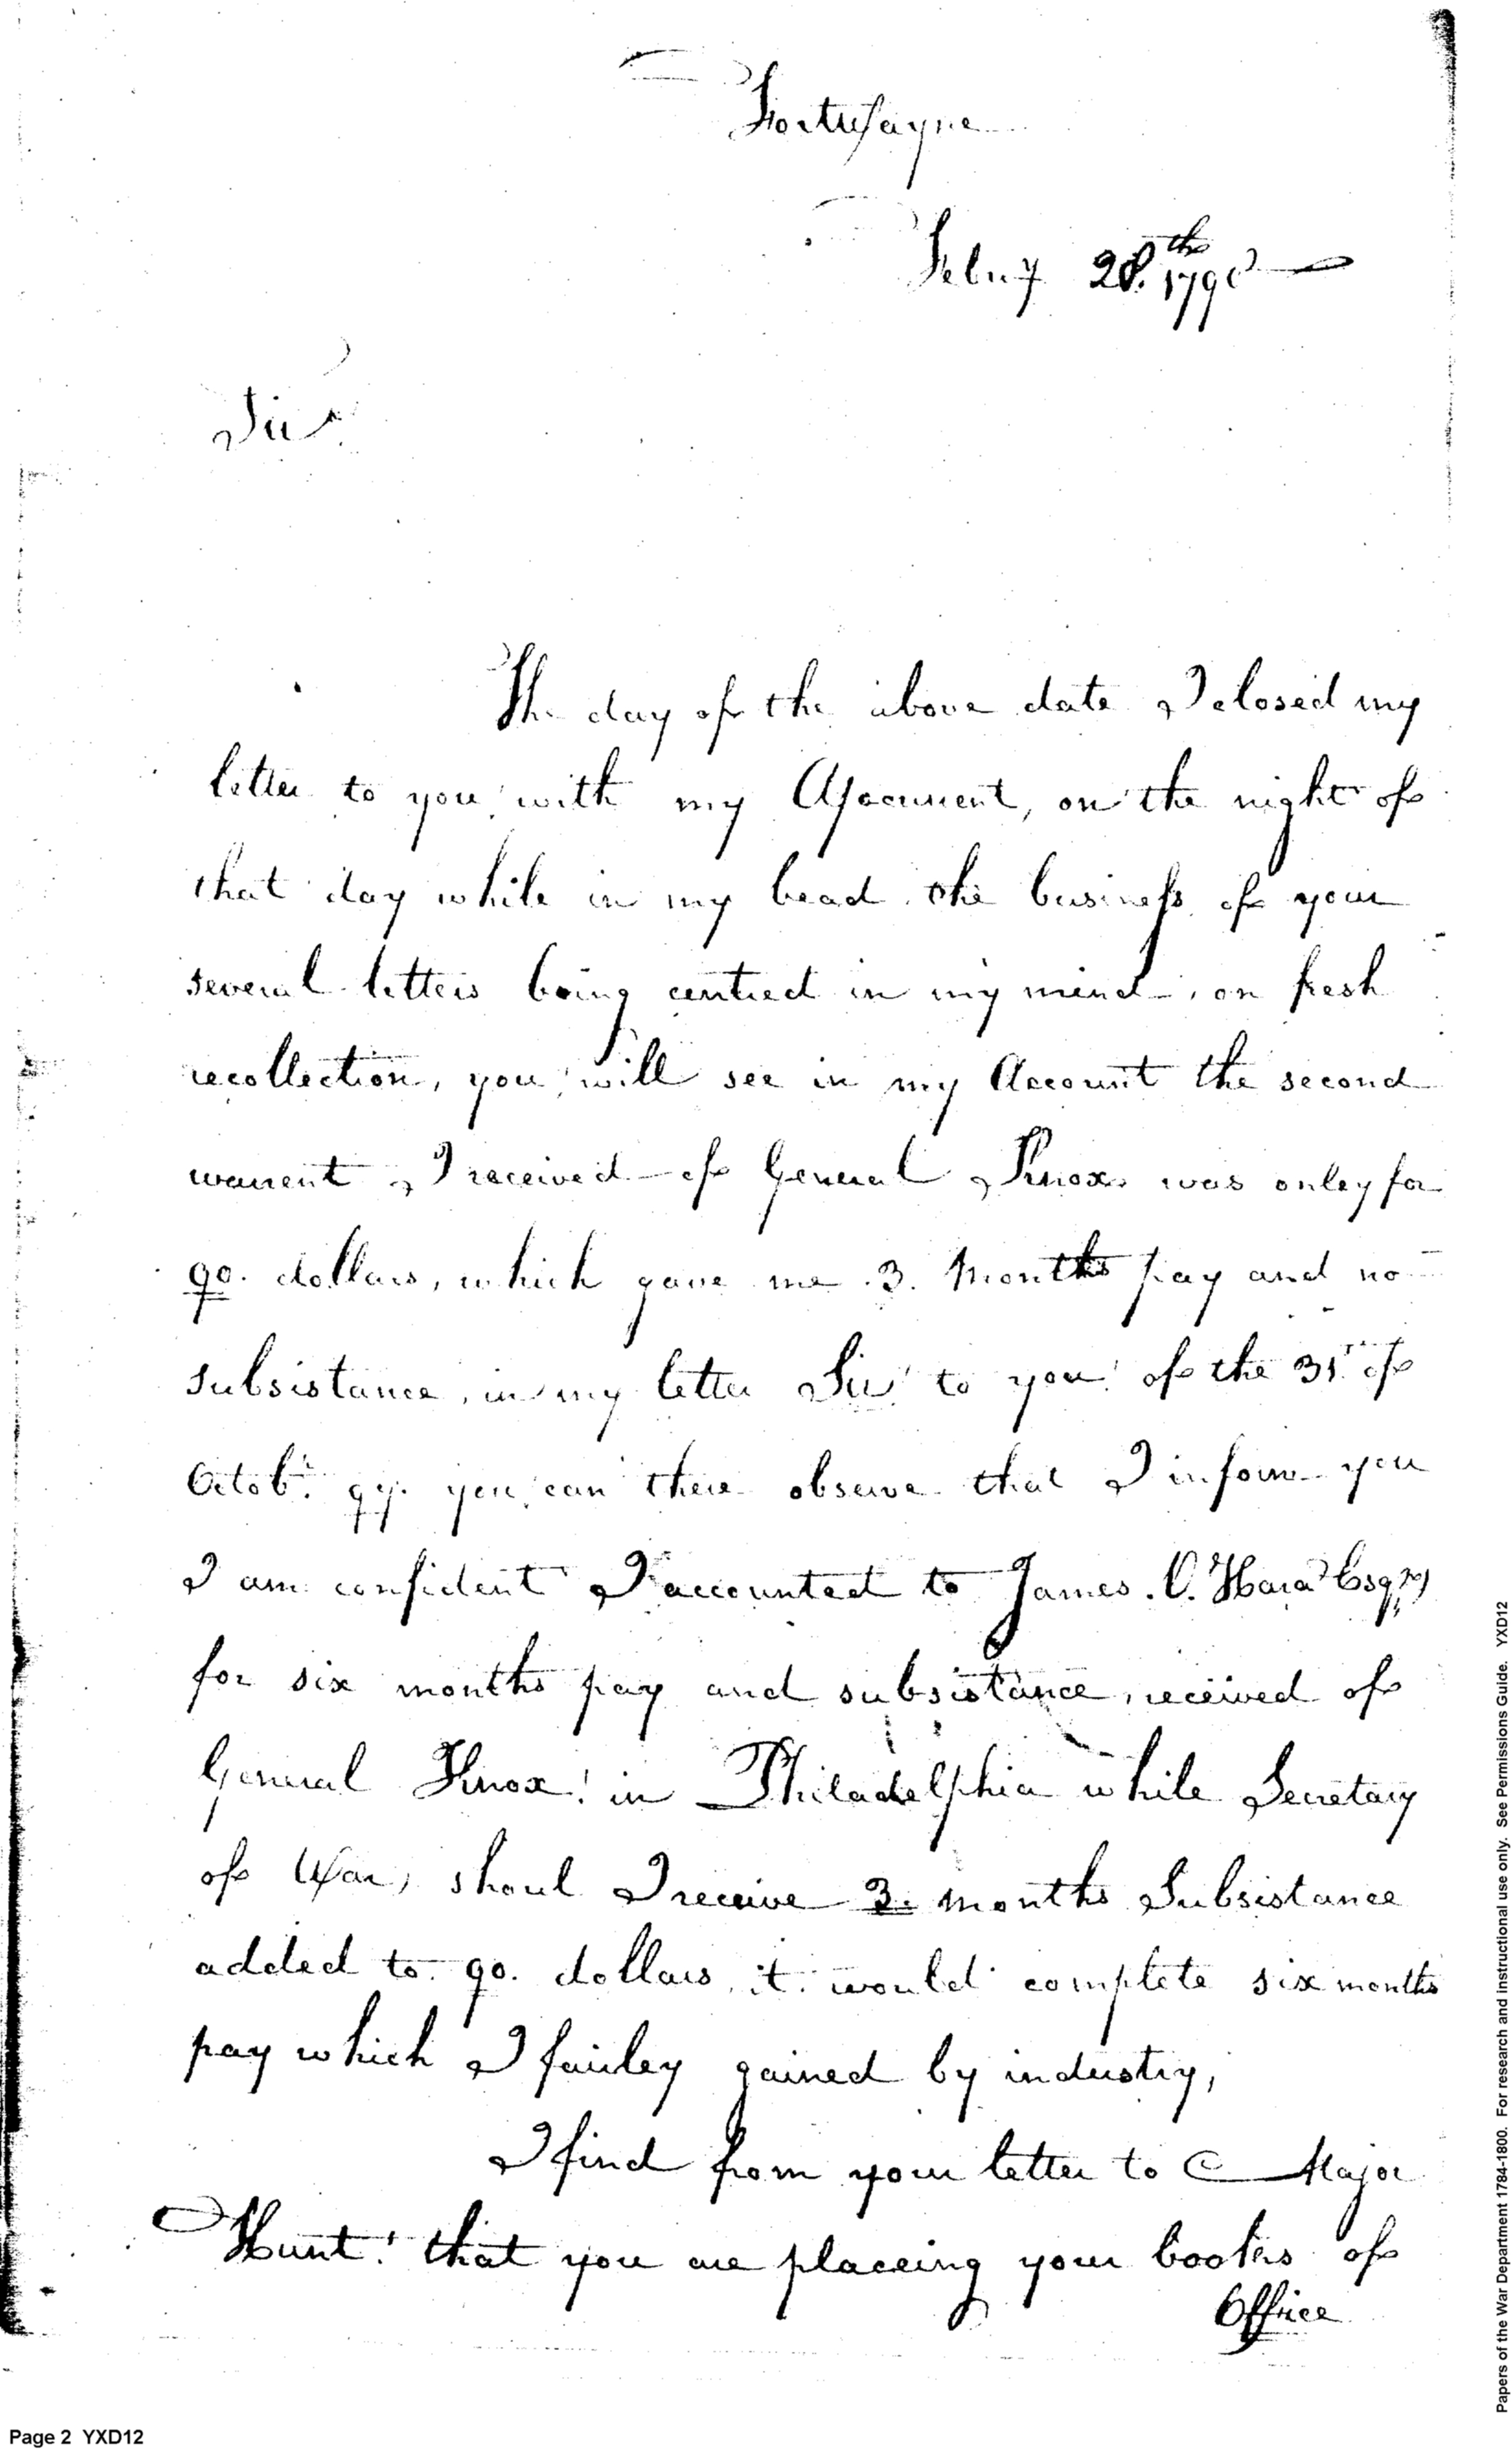 Fortwayne
Febry 28.th 1798
Sir
The day of the above date I closed my
letter to you with my Account, on the night of
that day while in my bead the business of your
several letters being centred in my mind, on fresh
recollection, you will see in my Account the second
warrent I received of General Knox was onley for
90. dollars, which gave me 3. Months pay and no
subsistance, in my letter Sir to you of the 31st of
Octobr. 97. you can there observe that I inform you
I am confident I accounted to James. O. Hara Esqr,
for six months pay and subsistance, received of
General Knox! in Philadelphia while Secretary
of War, shoul I receive 3. months Subsistance
added to 90. dollars it would complete six months
pay which I fairley gained by industry,
I find from your letter to Major
Hunt! that you are placeing your books of
Office
Page 2 YXD12
Papers of the War Department 1784-1800. For research and instructional use only. See Permissions Guide. YXD12